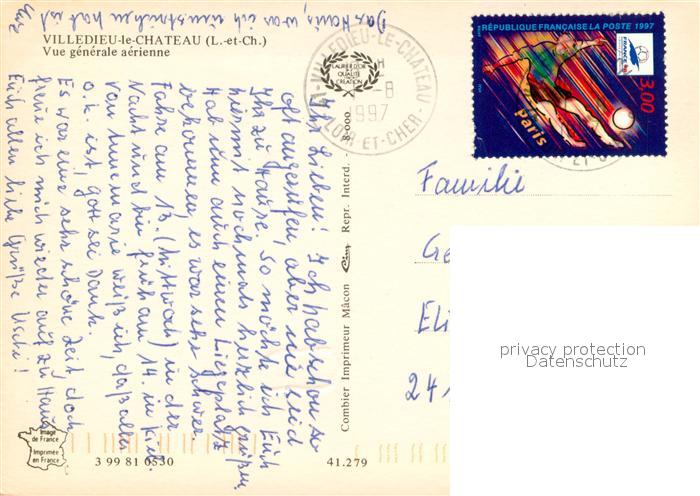 VILLEDIEU-le-CHATEAU (L.-et-Ch.)
Vue générale aérienne
VILLEDIEU-LE-CHATEAU
1997
LOIR-ET-CHER
LAURIER D'OR
QUALITÉ
CRÉATION
RÉPUBLIQUE FRANÇAISE LA POSTE 1997
FRANCE 98
3,00
Paris
Ihr Lieben! Ich hab schon so
oft angerufen, aber nie seid
Ihr zu Hause. So möchte ich Euch
hiermit nochmals herzlich grüßen.
Hab nun auch einen Liegeplatz
bekommen, es war sehr schwer.
Fahre am 13. (Mittwoch) in der
Nacht und bin früh am 14. in Kiel.
Von Annemarie weiß ich, daß alles
o.k. ist, Gott sei Dank.
Es war eine sehr schöne Zeit, doch
freue ich mich wieder auf zu Haus
Euch allen liebe Grüße
Das Haus, was ich
hat ist
Combier Imprimeur Mâcon
Cim
Repr. Interd. - 8-000
Familie
Ge
Eli
241
privacy protection
Datenschutz
Image
de France
Imprimée
en France
3 99 81 0530
41.279